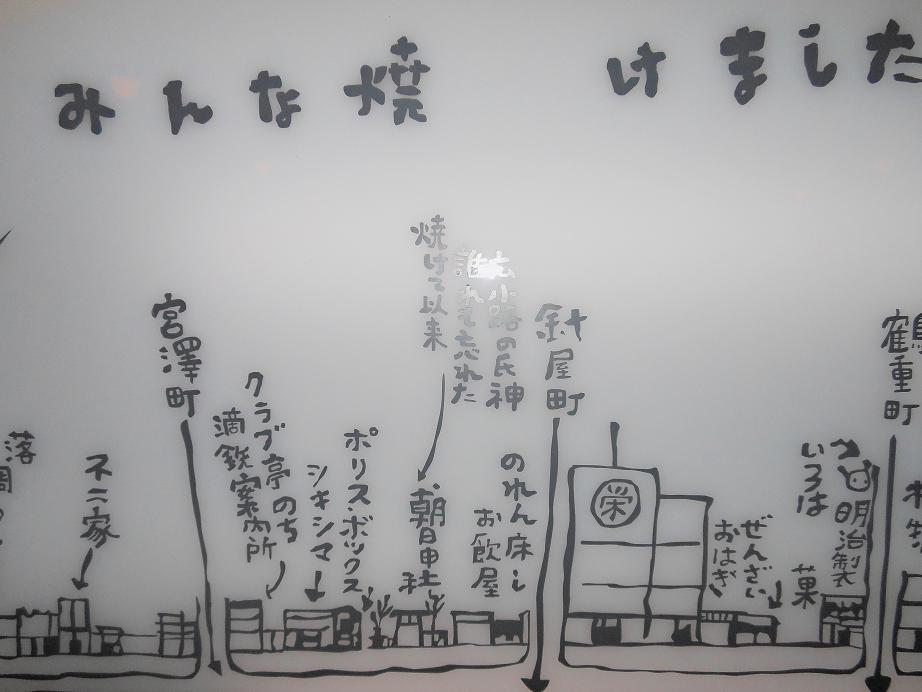 みんな焼けました
焼けて以来
誰れも忘れた
小路の氏神
宮澤町
針屋町
鶴重町
不二家
クラブ亭のち
満鉄案内所
シキシマ
ポリス・ボックス
朝日神社
のれん床し
お飲屋
栄
ぜんざい
おはぎ
いろは
明治製菓
落